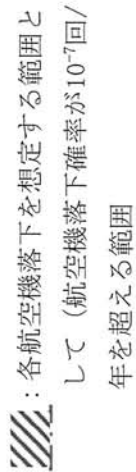 : 各航空機落下を想定する範囲と
して（航空機落下確率が10⁻⁷回/
年を超える範囲